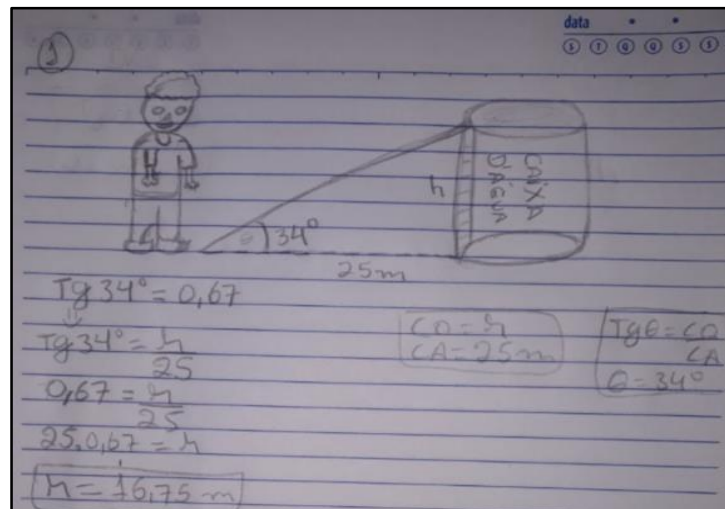 data
S T Q Q S S
1
34°
25m
h
CAIXA
D'ÁGUA
Tg 34° = 0,67
Tg 34° = h
25
0,67 = h
25
25.0,67 = h
h = 16,75 m
CO = h
CA = 25m
Tgθ = CO
CA
θ = 34°